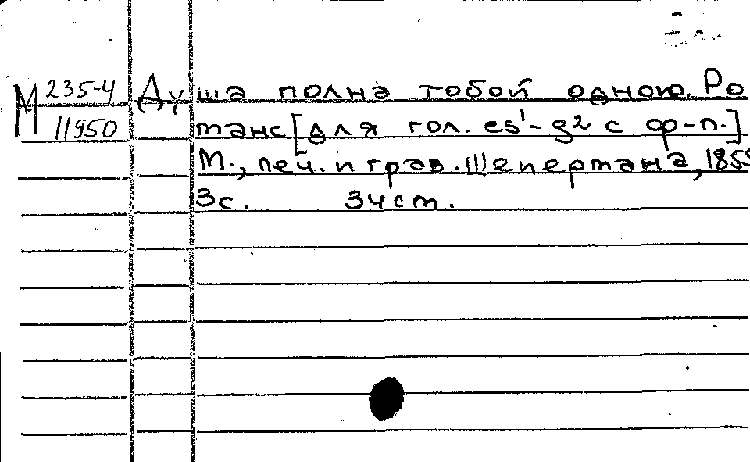 М 235-4
11950
Душа полна тобой одною. Ро
манс [для гол. es¹-g² с ф-п.]
М., печ. и грав. Шепермана, 1855
3с. 3 чст.